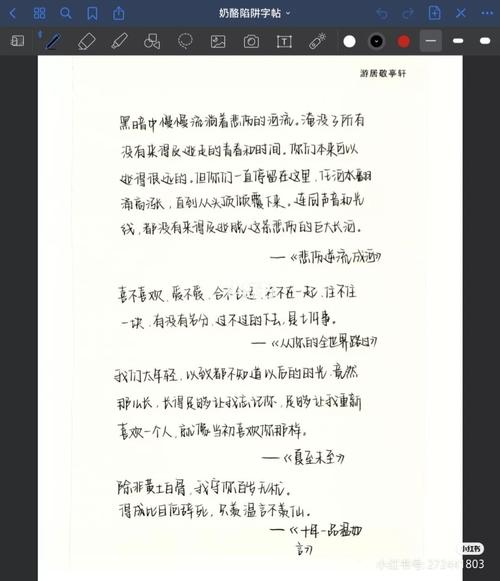 奶酪陷阱字帖
游居敬亭轩
黑暗中慢慢流淌着悲伤的河流。淹没了所有
没有来得及逃走的青春和时间。你们本来可以
逃得很远的。但你们一直停留在这里，任河水翻
涌高涨，直到从头顶倾覆下来。连同声音和光
线，都没有来得及逃脱这条悲伤的巨大长河。
—《悲伤逆流成河》
喜不喜欢，爱不爱，合不合适，在不在一起，住不住
一块，有没有名分，过不过的下去，是七件事。
—《从你的全世界路过》
我们太年轻，以致都不知道以后的时光，竟然
那么长，长得足够让我忘记你，足够让我重新
喜欢一个人，就像当初喜欢你那样。
—《夏至未至》
除非黄土白骨，我守你百岁无忧。
得成比目何辞死，只羡温言不羡仙。
—《十年一品温如
言》
小红书
小红书号：272441803